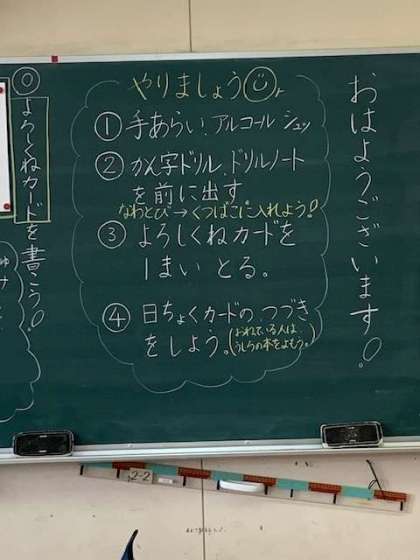 おはようございます!
やりましょう
① 手あらい、アルコールシュッ
② かん字ドリル、ドリルノート
を前に出す
なわとび→くつばこに入れよう!
③ よろしくねカードを
1まい とる。
④ 日ちょくカードの、つづき
をしよう。
(おわっている人は、
うしろの本をよもう。)
◎ よろしくねカードを書こう!
2-2